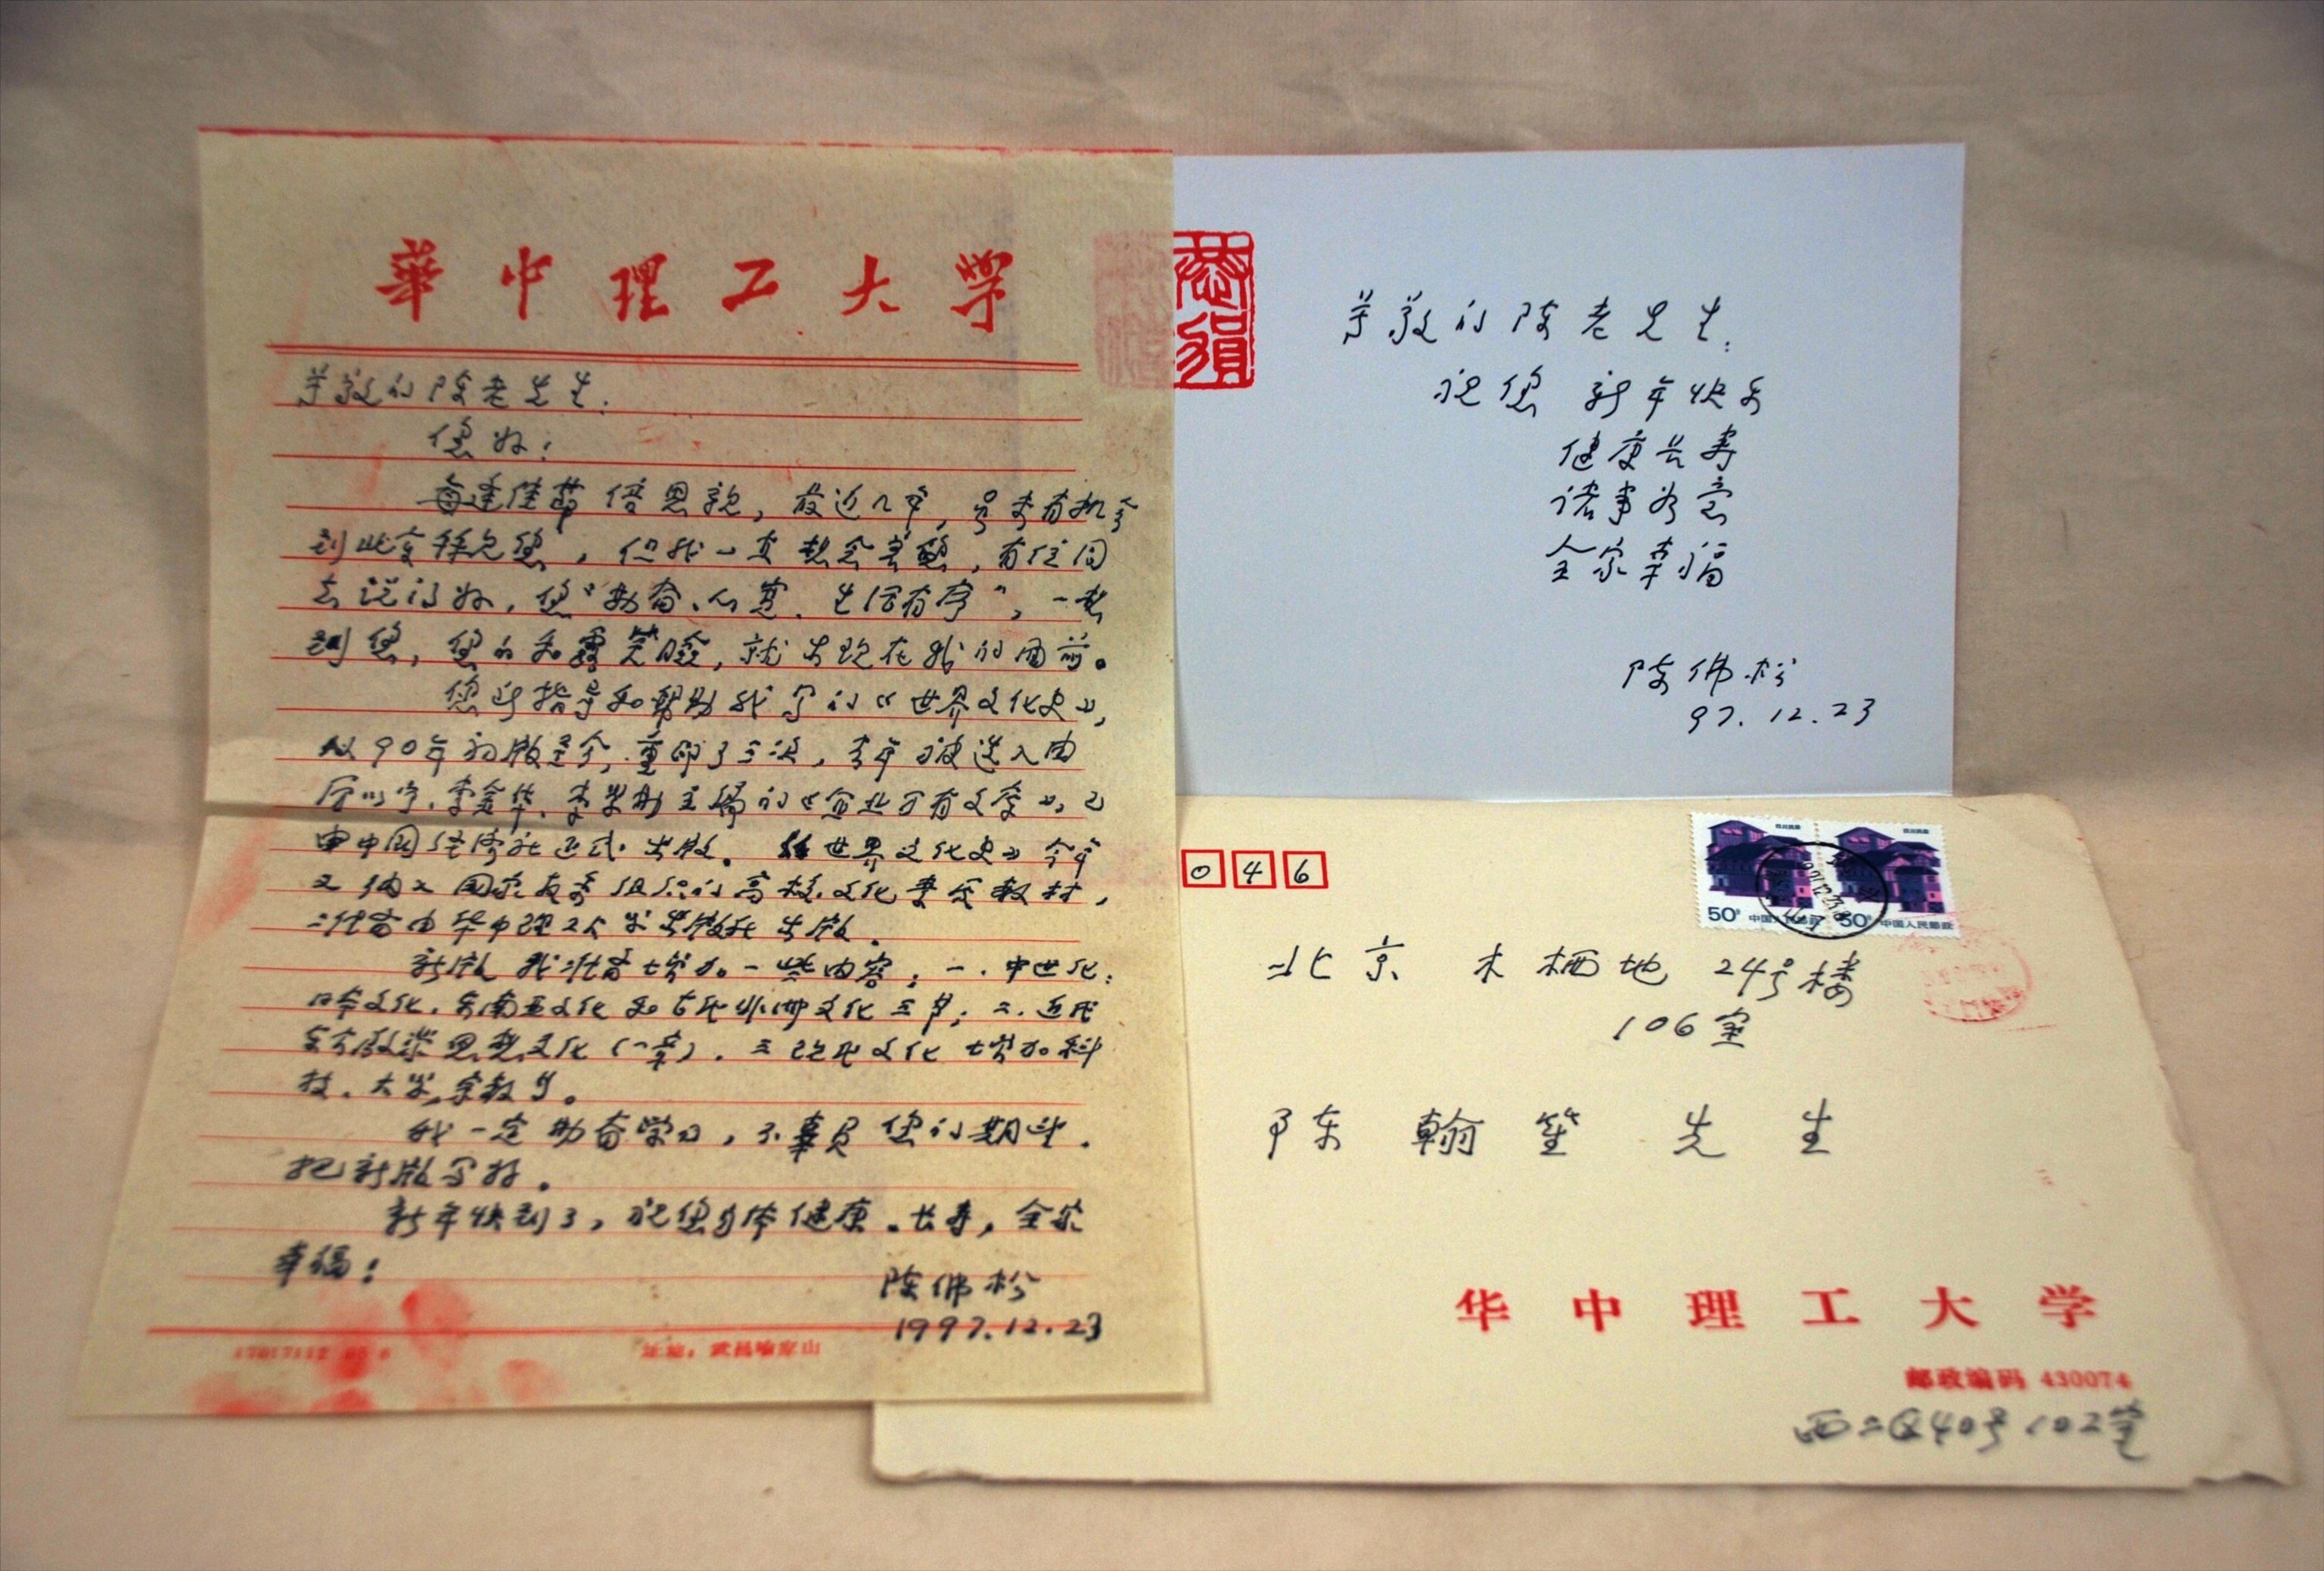 華中理工大学
尊敬的陈老先生：
您好！
每逢佳节倍思亲，最近几年，虽未有机会
到北京拜见您，但我一直想念着您，有位同
志说得好，您“勤奋、心宽、生活有序”，一想
到您，您的和蔼笑脸，就出现在我的面前。
您所指导和帮助我写的《世界文化史》，
从90年初版至今，重印了三次，去年被选入由
厉以宁、李金华、李学勤主编的《企业万有文库》，已
由中国经济社正式出版。《世界文化史》今年
又纳入国家教委组织的高校文化素质教材，
准备由华中理工大学出版社出版。
新版我准备增加一些内容，一.中世纪：
日本文化、东南亚文化和古代非洲文化三节；二.近代
启蒙思想文化（一章）.三现代文化增加科
技、大学、宗教等。
我一定勤奋学习，不辜负您的期望.
把新版写好。
新年快到了，祝您身体健康、长寿，全家
幸福！
陈佛松
1997.12.23
17017112 95 8
注地：武昌喻家山
恭贺
尊敬的陈老先生：
祝您 新年快乐
健康长寿
诸事如意
全家幸福
陈佛松
97.12.23
046
四川民居 四川民居
50分 中国人民邮政 50分 中国人民邮政
北京 木樨地 24号楼
106室
陈翰笙 先生
华中理工大学
邮政编码 430074
西二区40号102室